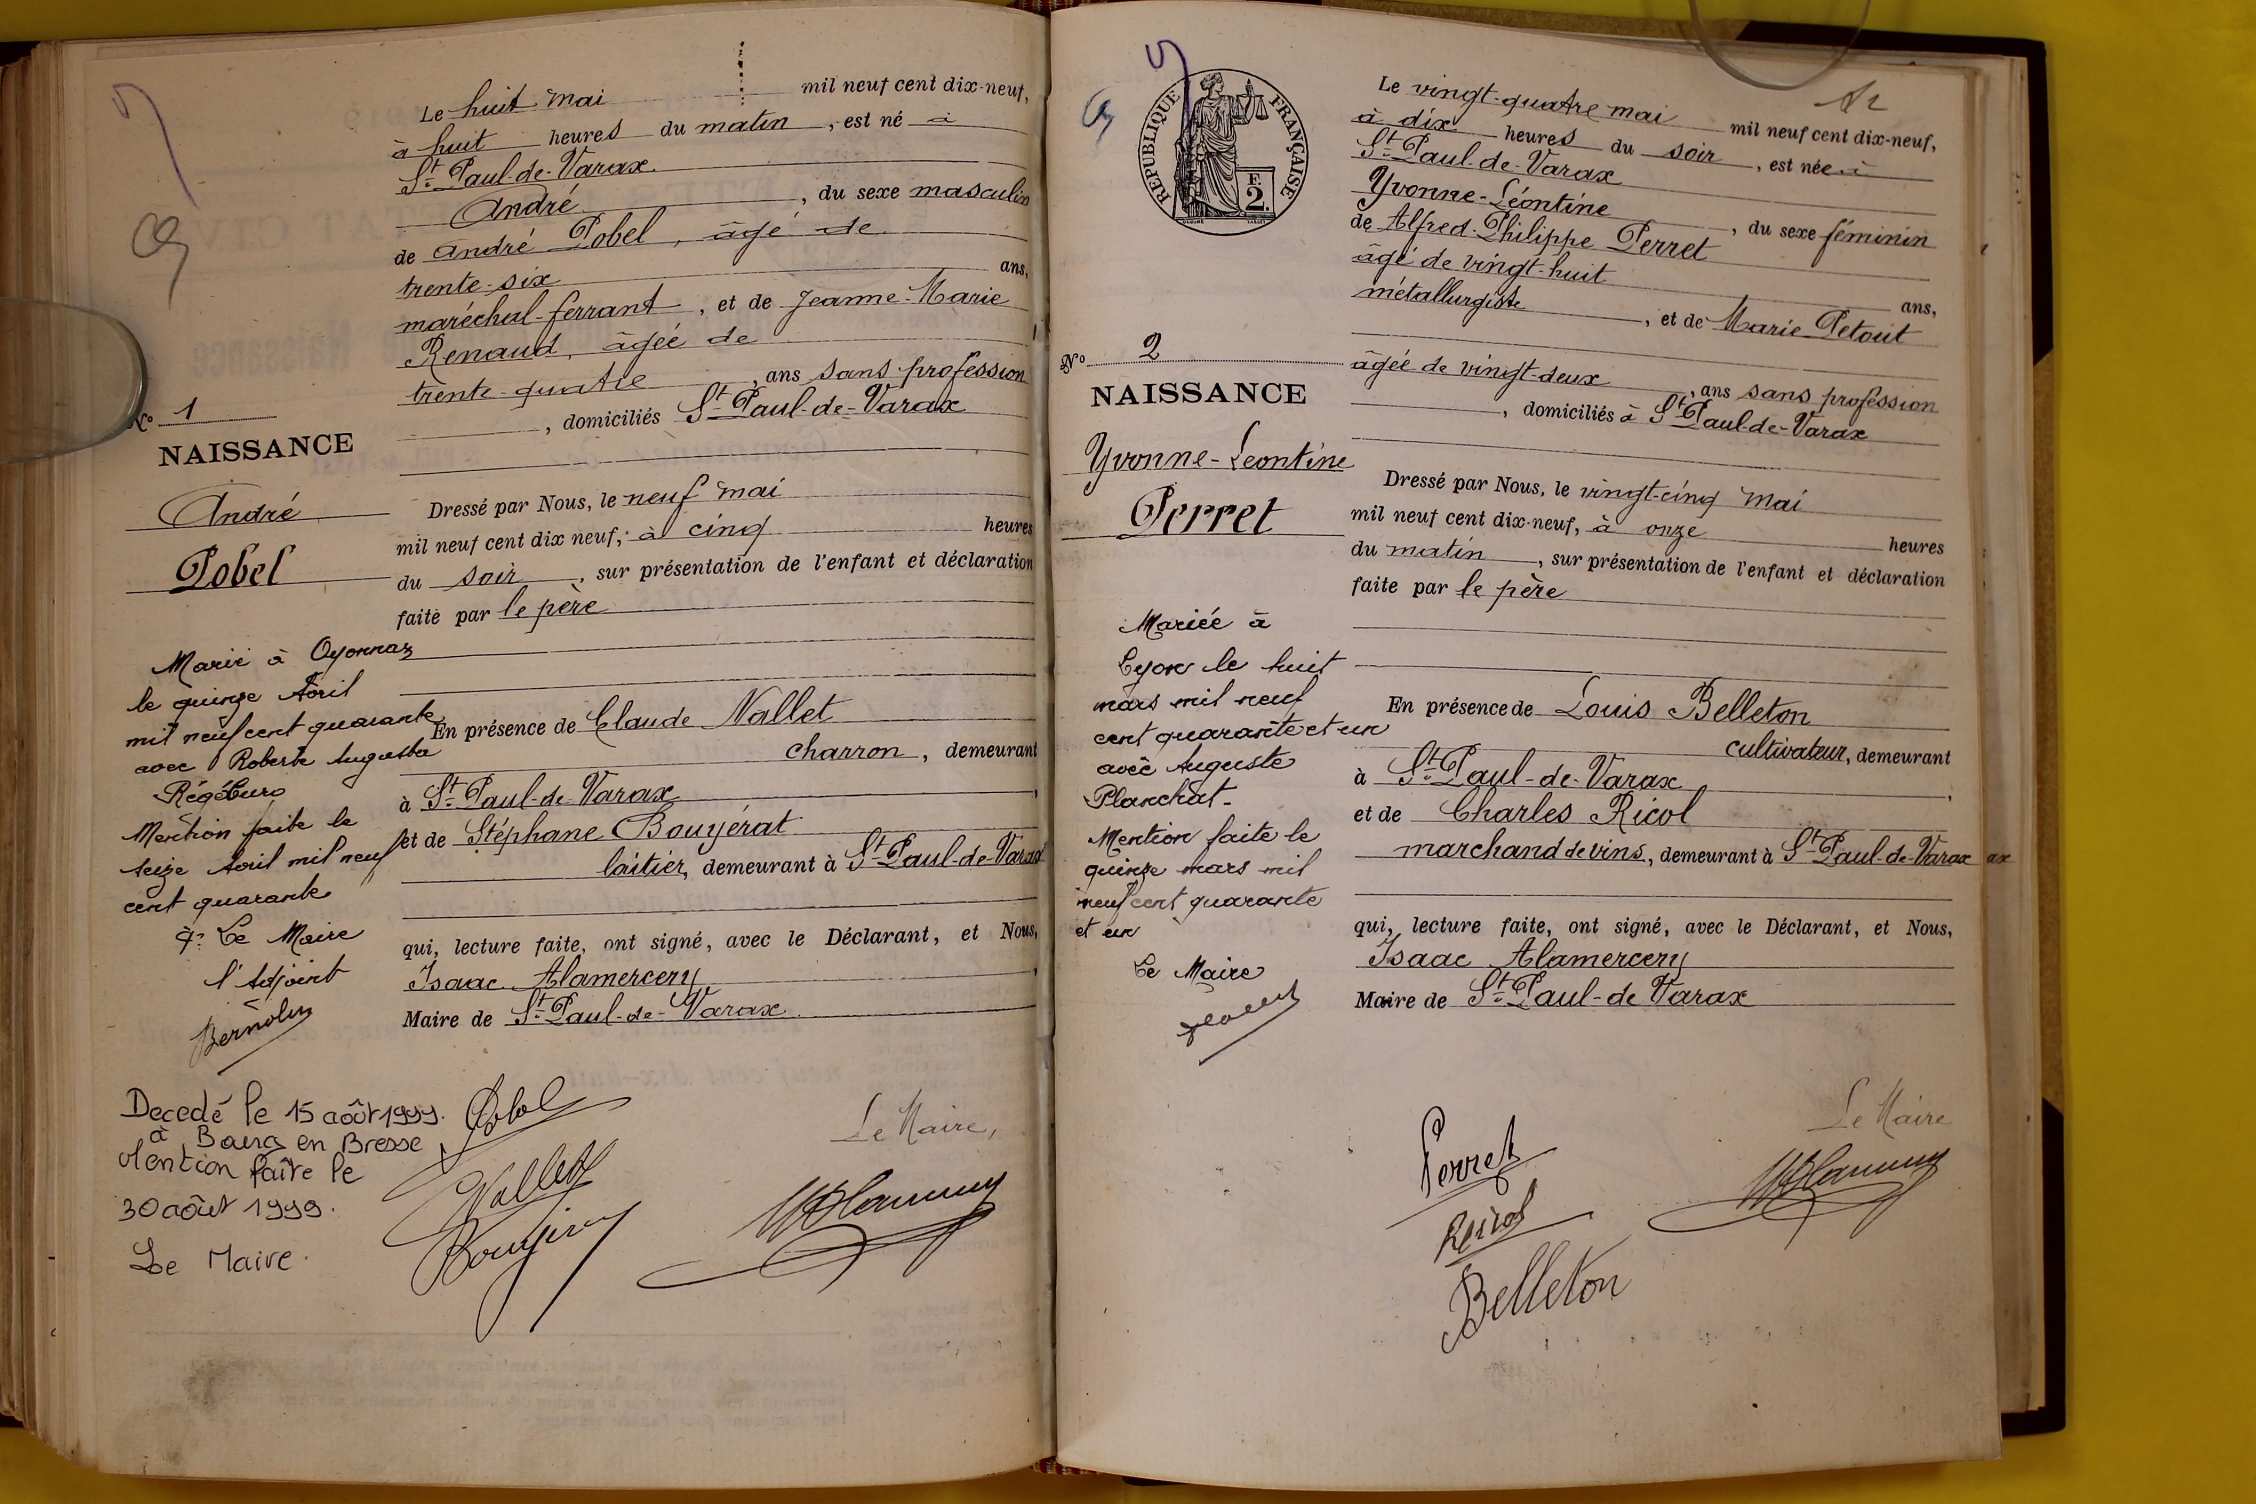 Le huit mai mil neuf cent dix-neuf,
à huit heures du matin, est né à
St Paul-de-Varax
André, du sexe masculin
de André Pobel, âgé de
trente-six ans,
maréchal-ferrant, et de Jeanne-Marie
Renaud, âgée de
trente-quatre, ans sans profession
, domiciliés St Paul-de-Varax
No 1
NAISSANCE
André
Pobel
Dressé par Nous, le neuf mai
mil neuf cent dix neuf, à cinq heures
du soir, sur présentation de l'enfant et déclaration
faite par le père
Marié à Oyonnax
le quinze Avril
mil neuf cent quarante
avec Roberte Augusta
Mention faite le
seize Avril mil neuf
cent quarante
Le Maire
l'Adjoint
En présence de Claude Nallet
charron, demeurant
à St Paul-de-Varax,
et de Stéphane Bouyérat
laitier, demeurant à St Paul-de-Varax
qui, lecture faite, ont signé, avec le Déclarant, et Nous,
Isaac Alamercery,
Maire de St Paul-de-Varax
Decedé le 15 août 1999.
à Bourg en Bresse
Mention faite le
30 août 1999.
Le Maire.
Pobel
Nallet
Le Maire,
RÉPUBLIQUE FRANÇAISE
F.
2.
Le vingt-quatre mai mil neuf cent dix-neuf,
à dix heures du soir, est née à
St Paul-de-Varax
Yvonne-Léontine, du sexe féminin
de Alfred-Philippe Perret
âgé de vingt-huit ans,
métallurgiste, et de Marie Petout
âgée de vingt-deux, ans sans profession
, domiciliés à St Paul-de-Varax
No 2
NAISSANCE
Yvonne-Leontine
Perret
Dressé par Nous, le vingt-cinq mai
mil neuf cent dix-neuf, à onze heures
du matin, sur présentation de l'enfant et déclaration
faite par le père
Mariée à
Lyon le huit
mars mil neuf
cent quarante et un
avec Auguste
Planchat-
Mention faite le
quinze mars mil
neuf cent quarante
et un
Le Maire
En présence de Louis Belleton
cultivateur, demeurant
à St Paul-de-Varax,
et de Charles Ricol
marchand de vins, demeurant à St Paul-de-Varax
qui, lecture faite, ont signé, avec le Déclarant, et Nous,
Isaac Alamercery
Maire de St Paul-de Varax
Le Maire
Perret
Ricol
Belleton